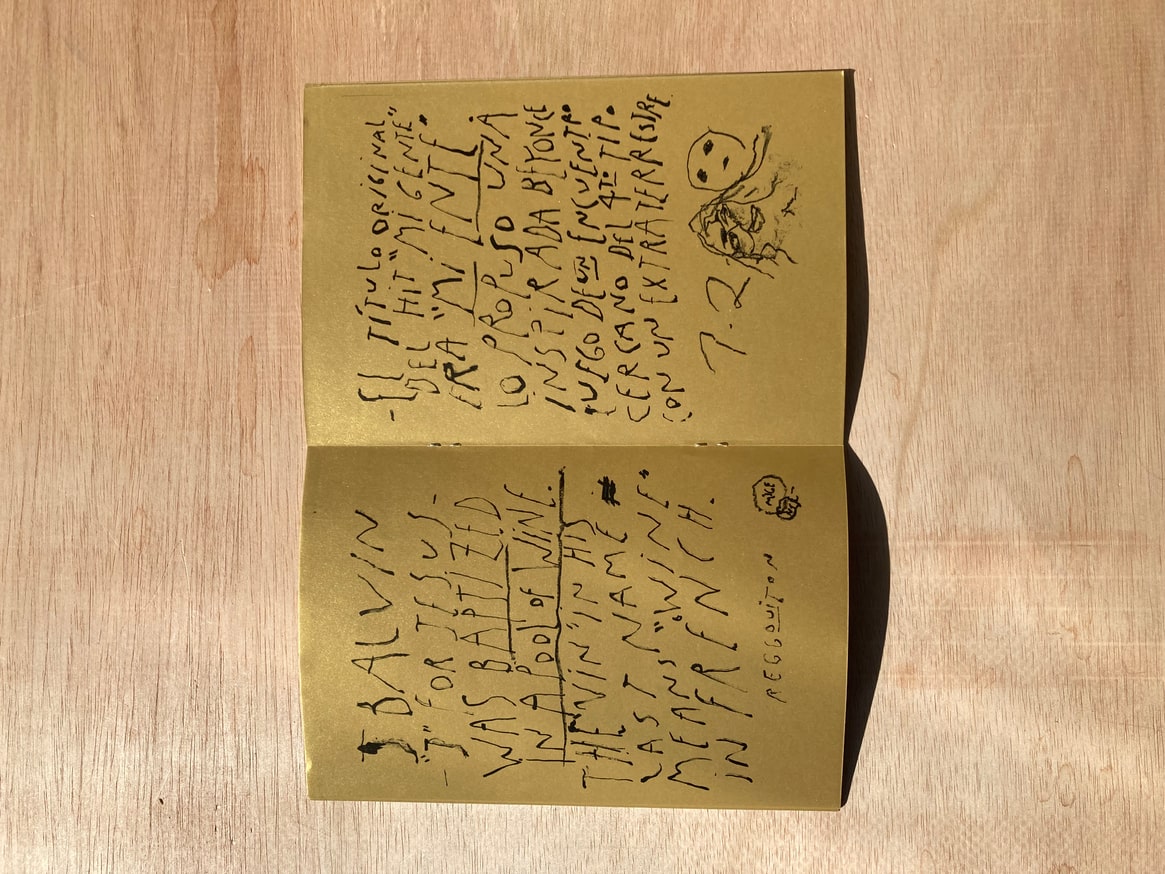 J BALVIN
- "J" FOR JESUS -
WAS BAPTIZED
IN A POOL OF WINE.
THE "VIN" IN HIS
LAST NAME
MEANS "WINE"
IN FRENCH.
REGGOUITON
- El TÍTULO ORIGINAL
DEL HIT "MI GENTE"
ERA "MI ENTE".
LO PROPUSO UNA
INSPIRADA BEYONCE
LUEGO DE UN ENCUENTRO
CERCANO DEL 4TO TIPO
CON UN EXTRATERRESTRE
7.2